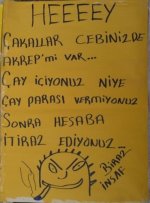 HEEEEY
ÇAKALLAR CEBİNİZDE
AKREP'mi VAR...
ÇAY İÇİYONUZ NİYE
ÇAY PARASI VERMİYONUZ
SONRA HESABA
İTİRAZ EDİYONUZ...
BİRAZ
İNSAF